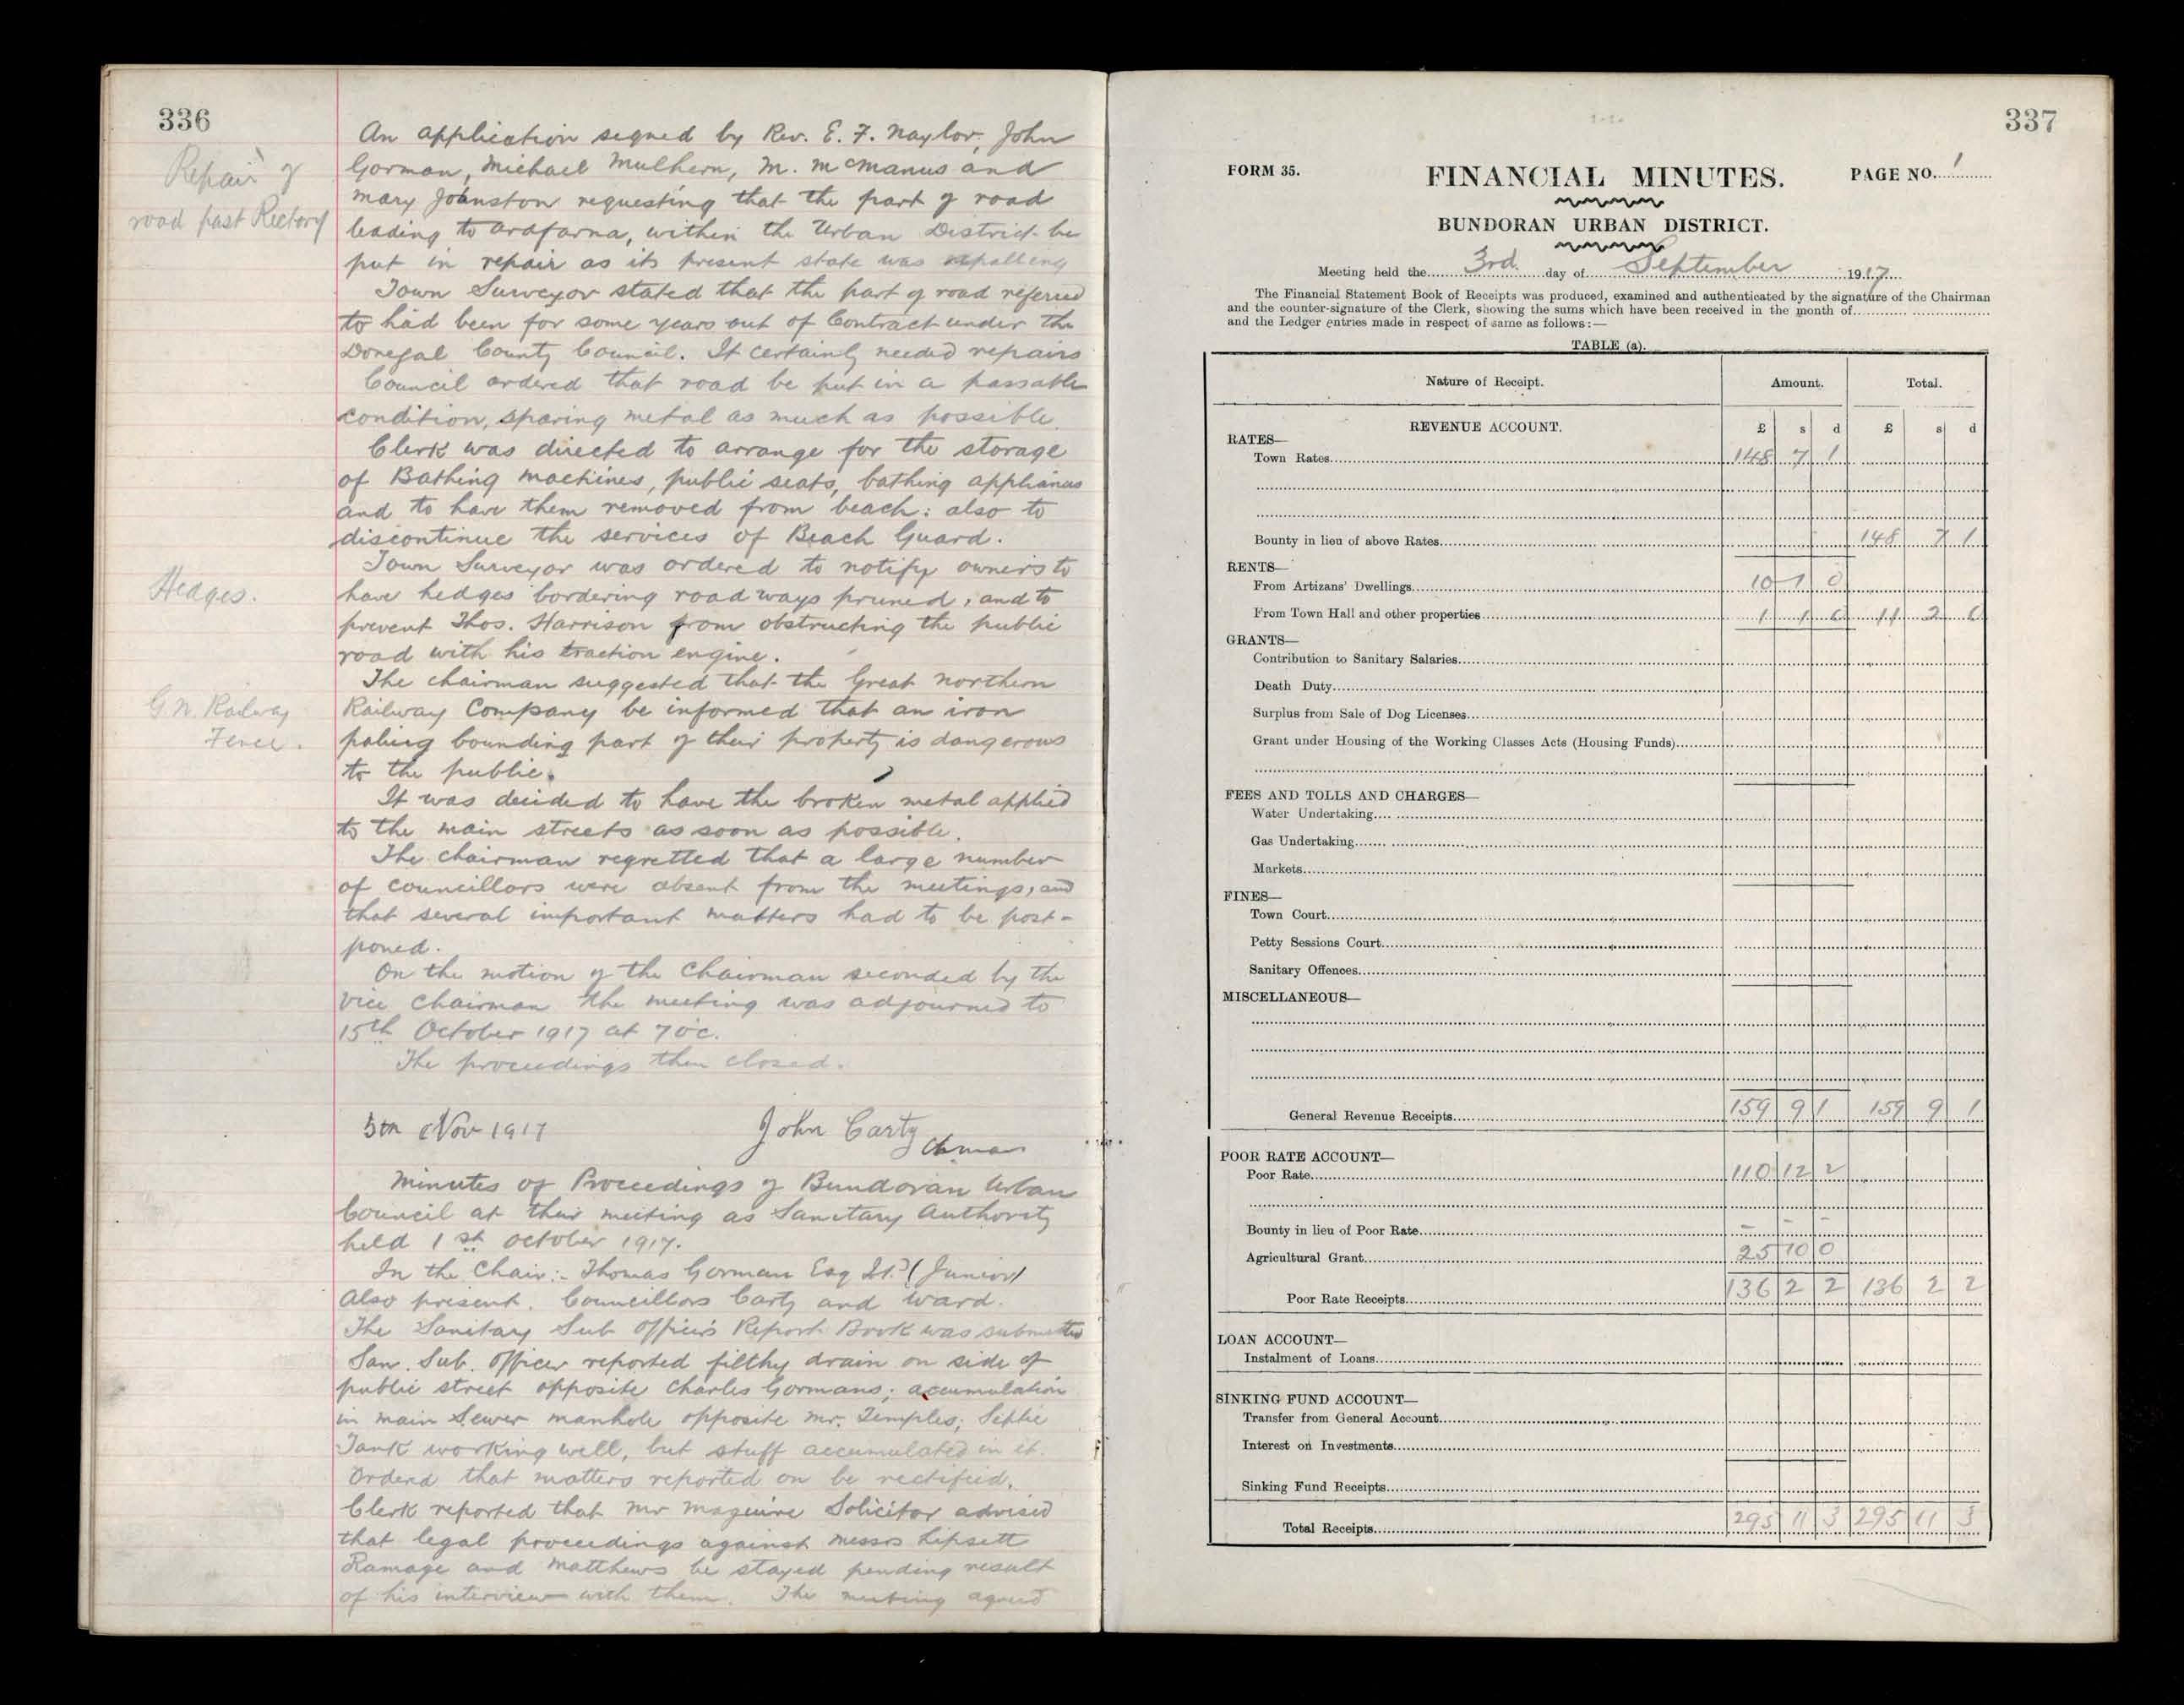 336
Repair of
road past Rectory
An application signed by Rev. E. F. Naylor, John
Gorman, Michael Mulhern, M. McManus and
Mary Johnston requesting that the part of road
leading to Ardfarna, within the Urban District be
put in repair as its present state was appalling
Town Surveyor stated that the part of road referred
to had been for some years out of Contract under the
Donegal County Council. It certainly needed repairs
Council ordered that road be put in a passable
condition, sparing metal as much as possible.
Clerk was directed to arrange for the storage
of Bathing machines, public seats, bathing appliances
and to have them removed from beach: also to
discontinue the services of Beach Guard.
Hedges.
Town Surveyor was ordered to notify owners to
have hedges bordering roadways pruned, and to
prevent Thos. Harrison from obstructing the public
road with his traction engine.
G.N. Railway
Fence.
The chairman suggested that the Great Northern
Railway Company be informed that an iron
paling bounding part of their property is dangerous
to the public.
It was decided to have the broken metal applied
to the main streets as soon as possible.
The chairman regretted that a large number
of councillors were absent from the meetings, and
that several important matters had to be post-
poned.
On the motion of the Chairman seconded by the
Vice Chairman the meeting was adjourned to
15th October 1917 at 7 o'c.
The proceedings then closed.
5th Nov 1917 John Carty
Chman
Minutes of Proceedings of Bundoran Urban
Council at their meeting as Sanitary Authority
held 1st October 1917.
In the Chair:- Thomas Gorman Esq (Junior)
Also present. Councillors Carty and Ward.
The Sanitary Sub Officer's Report Book was submitted
San. Sub. Officer reported filthy drain on side of
public street opposite Charles Gormans; accumulation
in main Sewer manhole opposite Mr. Temples; Septic
Tank working well, but stuff accumulated in it.
Ordered that matters reported on be rectified.
Clerk reported that Mr Maguire Solicitor advised
that legal proceedings against Messrs Lipsett
Ramage and Matthews be stayed pending result
of his interview with them. The meeting agreed
337
FORM 35. FINANCIAL MINUTES. PAGE NO. 1
BUNDORAN URBAN DISTRICT.
Meeting held the 3rd day of September 1917
The Financial Statement Book of Receipts was produced, examined and authenticated by the signature of the Chairman
and the counter-signature of the Clerk, showing the sums which have been received in the month of
and the Ledger entries made in respect of same as follows:—
TABLE (a).
Nature of Receipt. Amount. Total.
REVENUE ACCOUNT. £ s d £ s d
RATES—
Town Rates 148 7 1
Bounty in lieu of above Rates 148 7 1
RENTS—
From Artizans' Dwellings 10 1 0
From Town Hall and other properties 1 1 0 11 2 0
GRANTS—
Contribution to Sanitary Salaries
Death Duty
Surplus from Sale of Dog Licenses
Grant under Housing of the Working Classes Acts (Housing Funds)
FEES AND TOLLS AND CHARGES—
Water Undertaking
Gas Undertaking
Markets
FINES—
Town Court
Petty Sessions Court
Sanitary Offences
MISCELLANEOUS—
General Revenue Receipts 159 9 1 159 9 1
POOR RATE ACCOUNT—
Poor Rate 110 12 2
Bounty in lieu of Poor Rate - - -
Agricultural Grant 25 10 0
Poor Rate Receipts 136 2 2 136 2 2
LOAN ACCOUNT—
Instalment of Loans
SINKING FUND ACCOUNT—
Transfer from General Account
Interest on Investments
Sinking Fund Receipts
Total Receipts 295 11 3 295 11 3